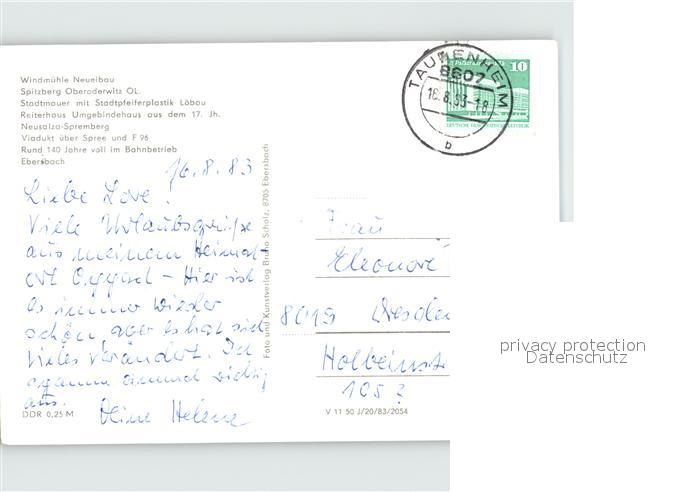 Windmühle Neueibau
Spitzberg Oberoderwitz OL.
Stadtmauer mit Stadtpfeiferplastik Löbau
Reiterhaus Umgebindehaus aus dem 17. Jh.
Neusalza-Spremberg
Viadukt über Spree und F 96
Rund 140 Jahre voll im Bahnbetrieb
Ebersbach
TAUBENHEIM
8607
16.8.83-18
b
10
DEUTSCHE DEMOKRATISCHE REPUBLIK
16.8.83
Liebe Lore!
Viele Urlaubsgrüße
aus meinem Heimat-
ort - Hier ist
es immer wieder
schön aber es hat sich
vieles verändert. Ich
spanne einmal richtig
aus.
Deine Helene
DDR 0,25 M
Foto und Kunstverlag Bruno Scholz, 8705 Ebersbach
Frau
Eleonore
8019 Dresden
Holbeinstr
105
V 11 50 J/20/83/2054
privacy protection
Datenschutz